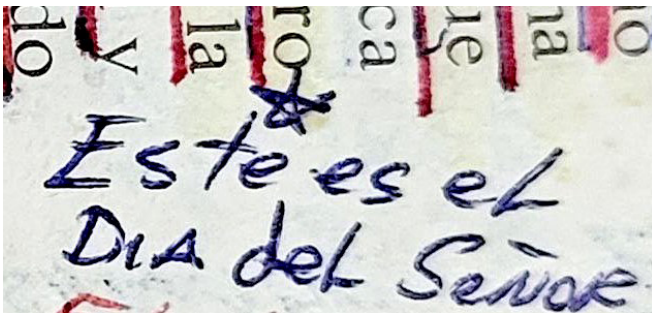 do
y
la
ro
ca
ue
na
no
Este es el
DIA del Señor